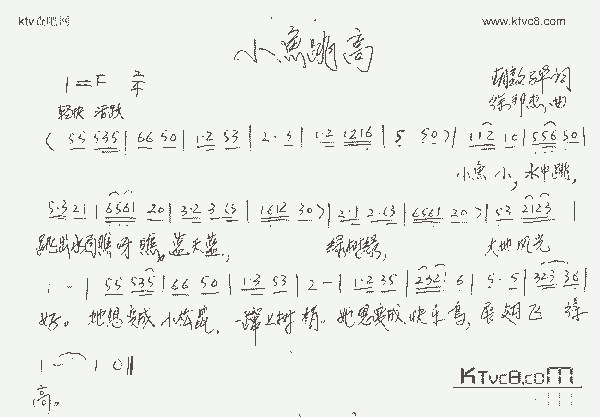 ktv酷吧网
www.ktvc8.com
小魚跳高
1=F 2/4
轻快 活跃
词
曲
( 55 535 | 66 50 | 1·2 53 | 2·5 | 1·2 1216 | 5 50 ) | 112 10 | 556 50 |
小魚小,水中跳,
5·3 21 | 6561 20 | 3·2 3·63 | 1612 30 ) | 2·1 2·63 | 6561 20 ) | 53 2123 |
跳出水面瞧呀瞧,蓝天蓝, 绿树绿, 大地风光
i - | 55 535 | 66 50 | 1·3 53 | 2 - | 1·2 35 | 232 6 | 5·5 | 323 36 |
好。她想变成小松鼠,一蹿上树梢。她想变成快乐鸟,展翅飞
1 - 1 0 ‖
高。
KTvc8.com